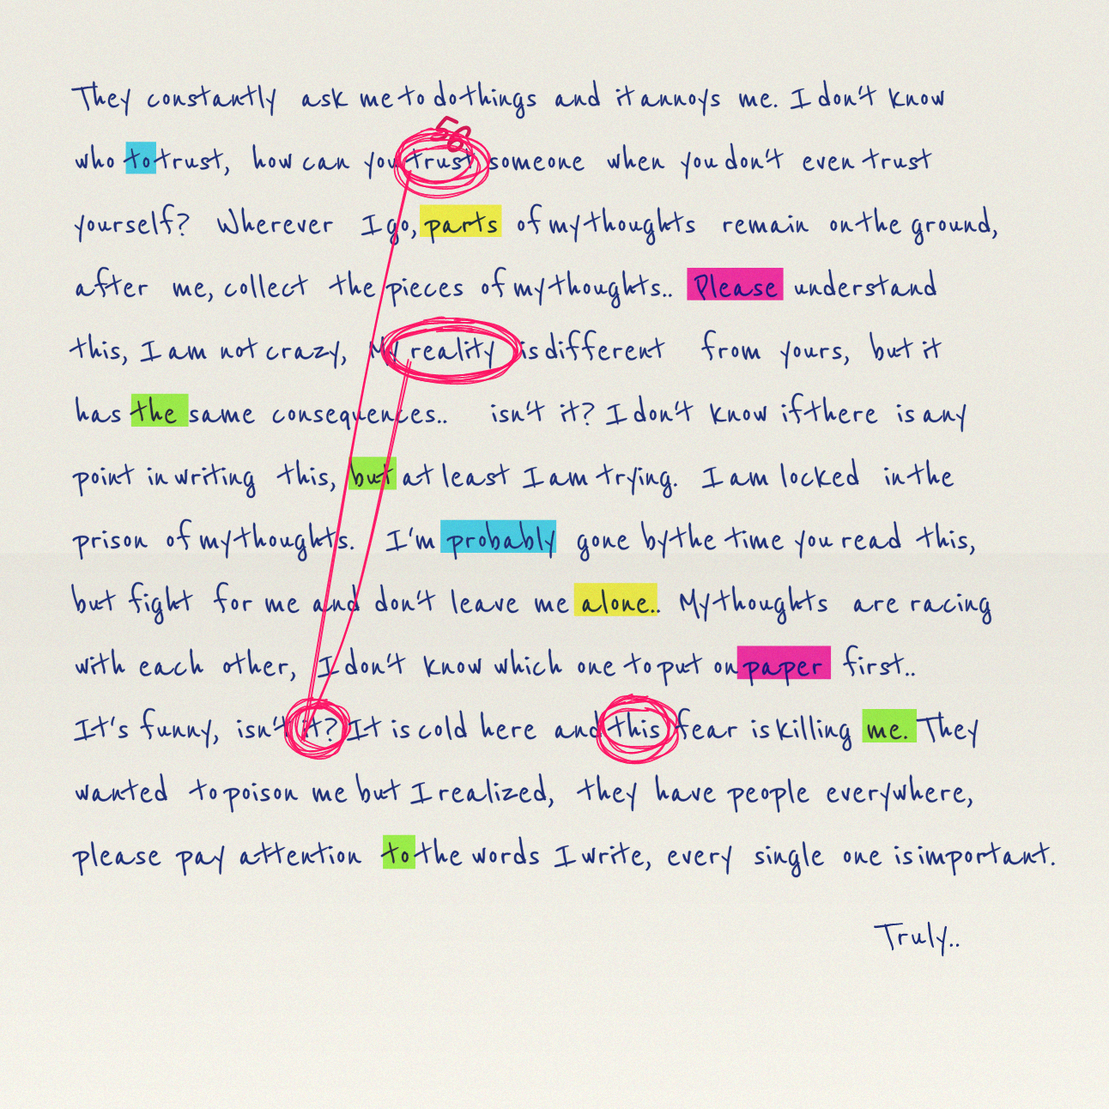 They constantly ask me to do things and it annoys me. I don't know
56
who to trust, how can you trust someone when you don't even trust
yourself? Wherever I go, parts of my thoughts remain on the ground,
after me, collect the pieces of my thoughts.. Please understand
this, I am not crazy, My reality is different from yours, but it
has the same consequences.. isn't it? I don't know if there is any
point in writing this, but at least I am trying. I am locked in the
prison of my thoughts. I'm probably gone by the time you read this,
but fight for me and don't leave me alone.. My thoughts are racing
with each other, I don't know which one to put on paper first..
It's funny, isn't it? It is cold here and this fear is killing me. They
wanted to poison me but I realized, they have people everywhere,
please pay attention to the words I write, every single one is important.
Truly..